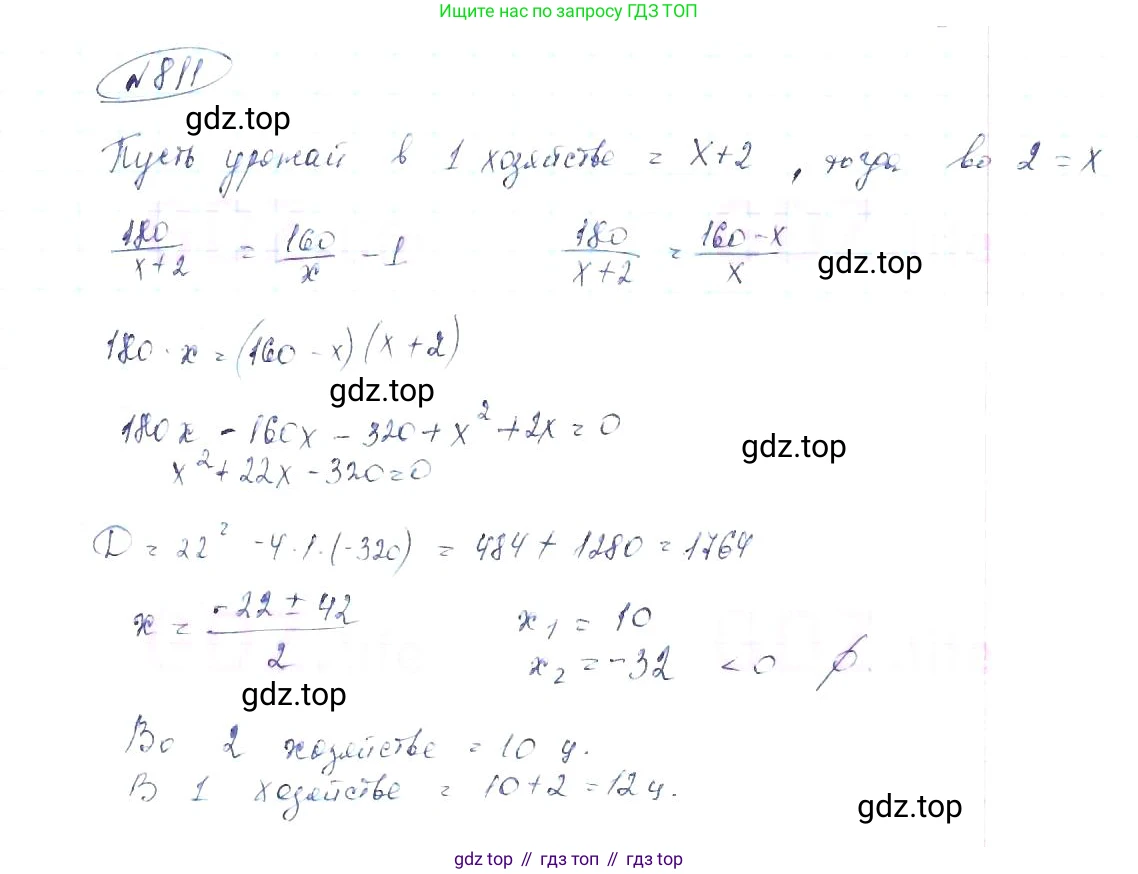 Ищите нас по запросу ГДЗ ТОП
№811
gdz.top
Пусть урожай в 1 хозяйстве = x+2, тогда во 2 = x
180/(x+2) = 160/x - 1    180/(x+2) = (160-x)/x
gdz.top
180·x = (160-x)(x+2)
gdz.top
180x - 160x - 320 + x² + 2x = 0
gdz.top
x² + 22x - 320 = 0
D = 22² - 4·1·(-320) = 484 + 1280 = 1764
x = (-22 ± 42)/2    x₁ = 10
x₂ = -32 < 0 ∅.
gdz.top
Во 2 хозяйстве = 10 ц.
В 1 хозяйстве = 10+2 = 12 ц.
gdz.top
gdz top // гдз топ // гдз top